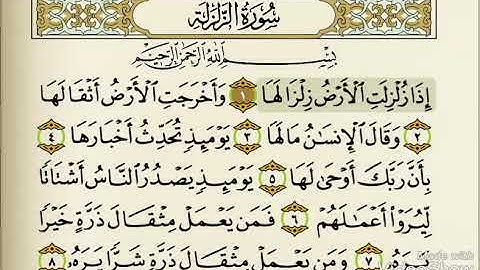 سُورَةُ الزَّلْزَلَةِ
بِسْمِ اللَّهِ الرَّحْمَٰنِ الرَّحِيمِ
إِذَا زُلْزِلَتِ الْأَرْضُ زِلْزَالَهَا ١ وَأَخْرَجَتِ الْأَرْضُ أَثْقَالَهَا
٢ وَقَالَ الْإِنسَانُ مَا لَهَا ٣ يَوْمَئِذٍ تُحَدِّثُ أَخْبَارَهَا ٤
بِأَنَّ رَبَّكَ أَوْحَىٰ لَهَا ٥ يَوْمَئِذٍ يَصْدُرُ النَّاسُ أَشْتَاتًا
لِّيُرَوْا أَعْمَالَهُمْ ٦ فَمَن يَعْمَلْ مِثْقَالَ ذَرَّةٍ خَيْرًا
يَرَهُ ٧ وَمَن يَعْمَلْ مِثْقَالَ ذَرَّةٍ شَرًّا يَرَهُ ٨
Made with